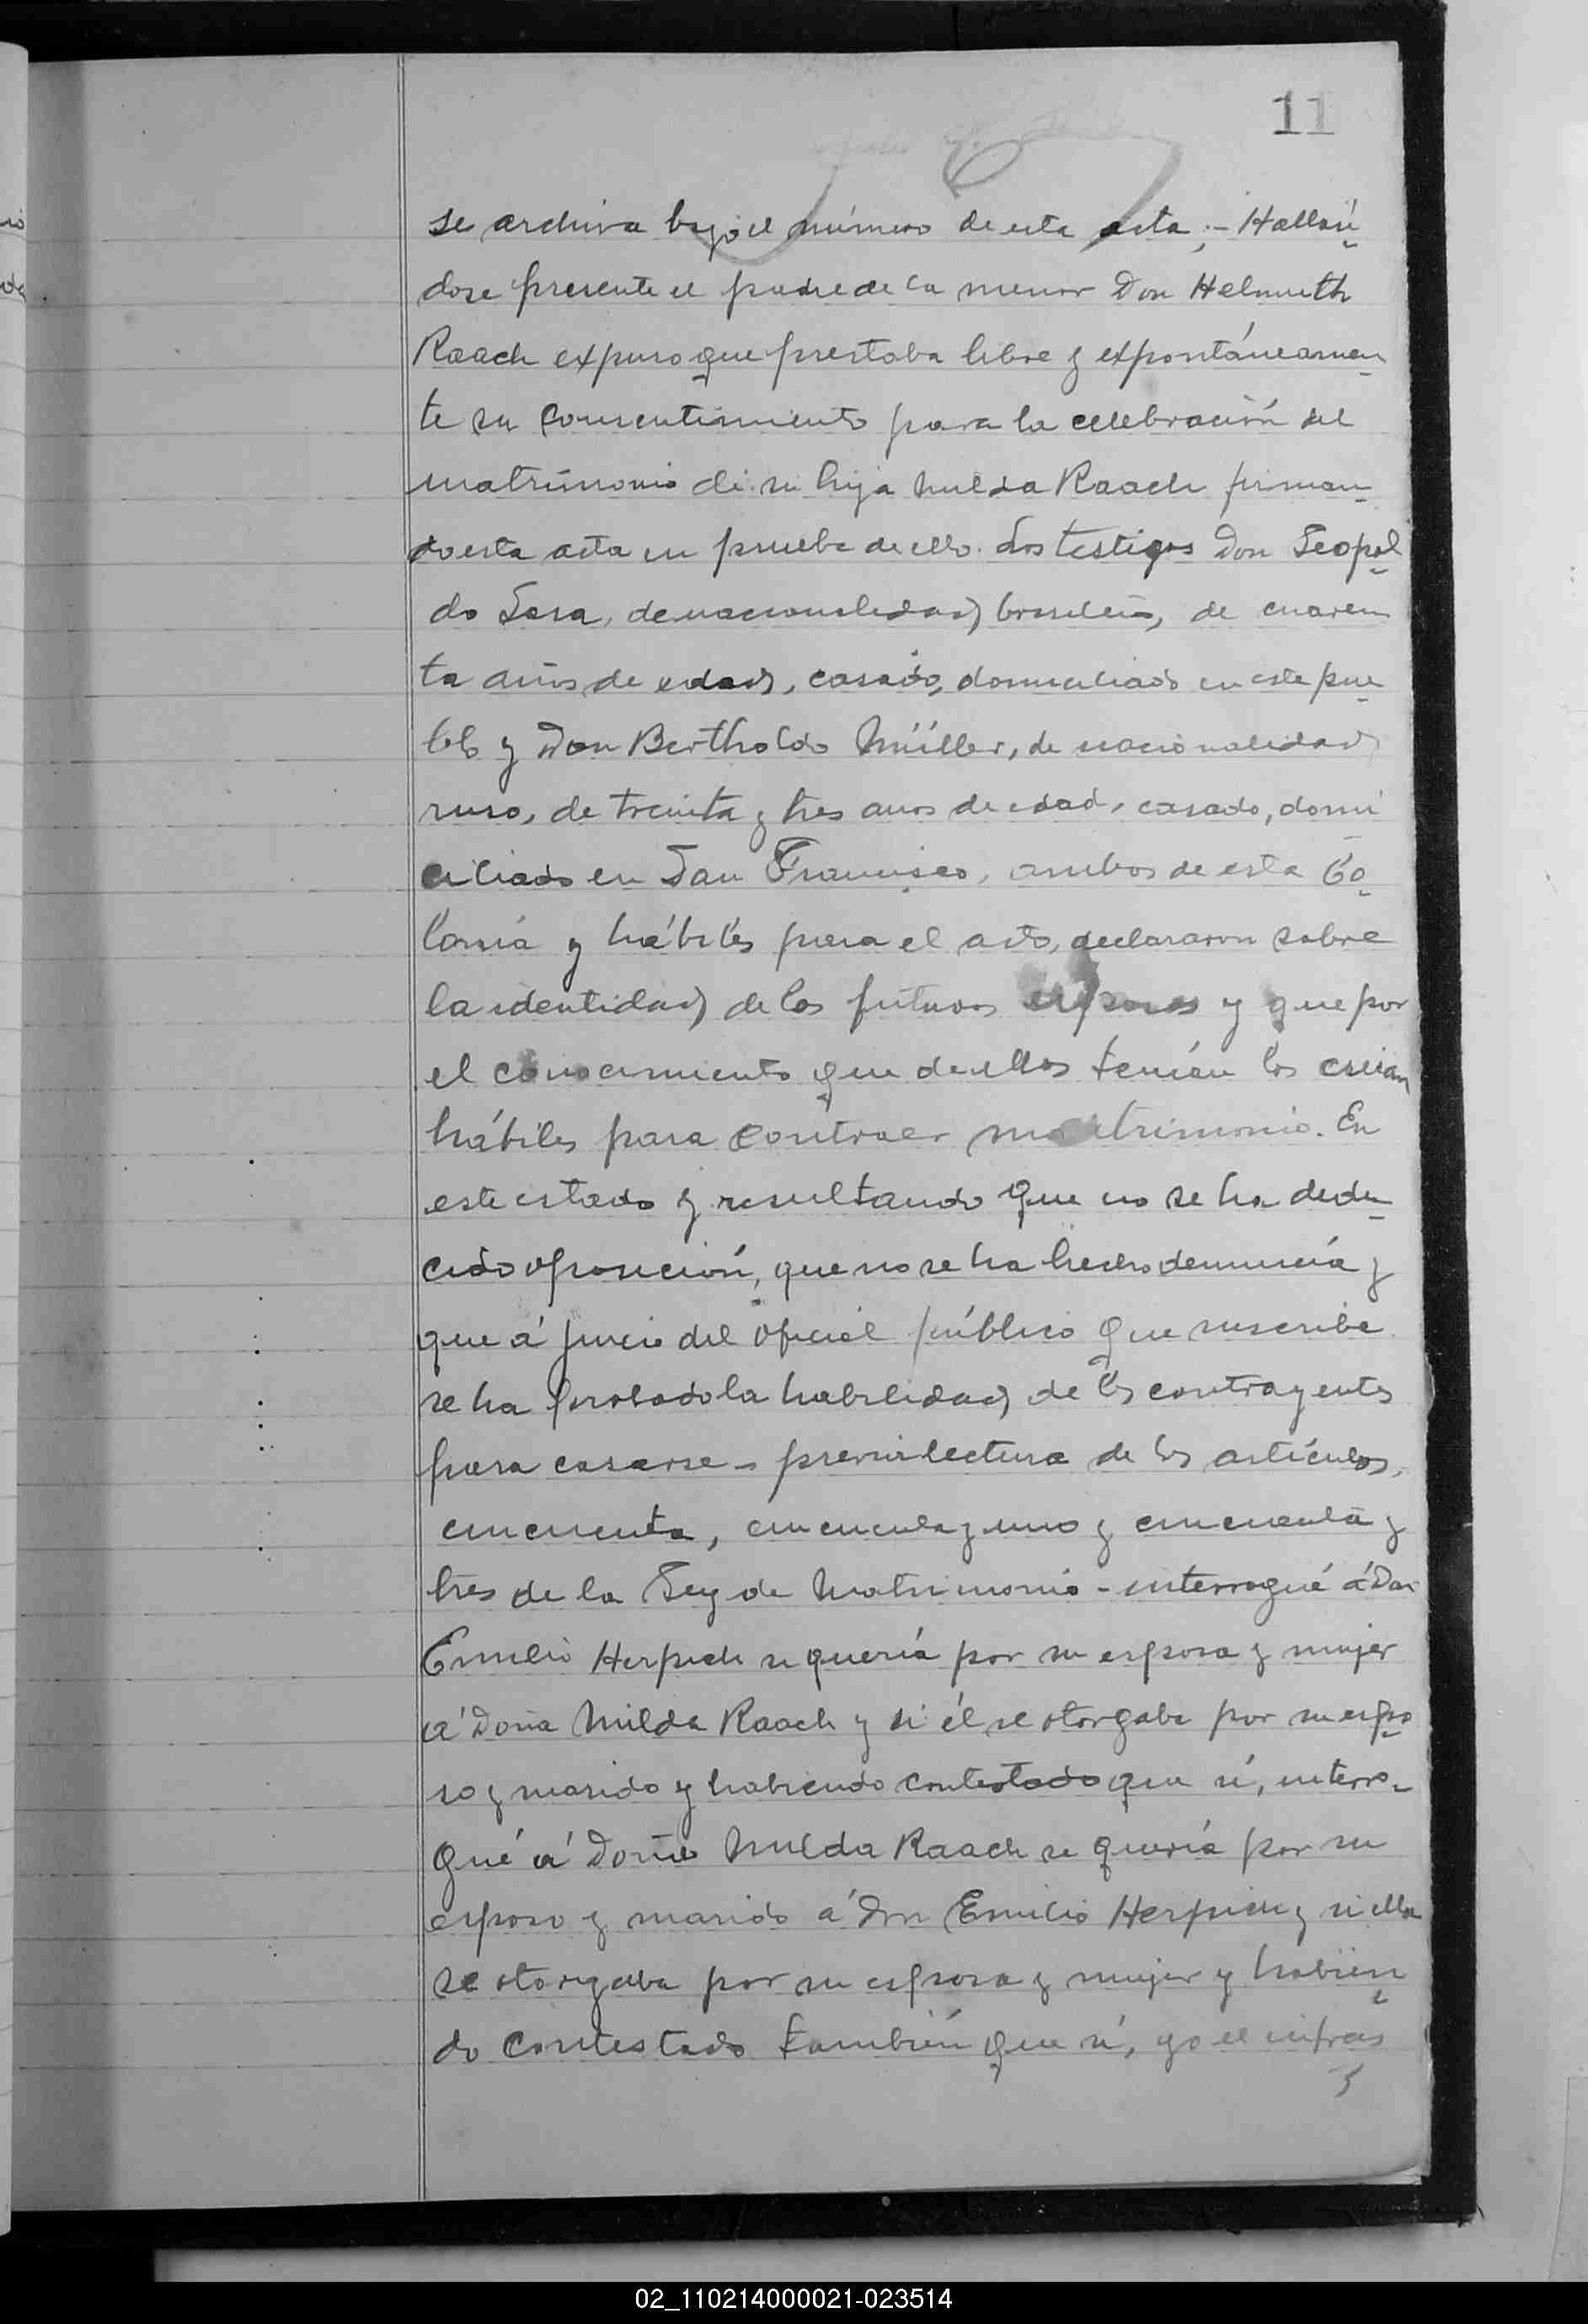 11
se archiva bajo el número de esta acta;- Hallán
dose presente el padre de la menor Don Helmuth
Raach expuso que prestaba libre y expontáneamen
te su consentimiento para la celebración del
matrimonio de su hija Milda Raach firman
do esta acta en prueba de ello. Los testigos Don Leopol
do Lara, de nacionalidad brasilero, de cuaren
ta años de edad, casado, domiciliado en este pue
blo y Don Bertholdo Müller, de nacionalidad
ruso, de treinta y tres anos de edad, casado, domi
ciliado en San Francisco, ambos de esta Co
lonia y hábiles para el acto, declararon sobre
la identidad de los futuros esposos y que por
el conocimiento que de ellos tenían los creían
hábiles para contraer matrimonio. En
este estado y resultando que no se ha dedu
cido oposición, que no se ha hecho denuncia y
que á juicio del oficial público que suscribe
se ha probado la habilidad de los contrayentes
para casarse - previa lectura de los artículos,
cincuenta, cincuenta y uno y cincuenta y
tres de la Ley de Matrimonio - interrogué á Don
Emilio Herpich si quería por su esposa y mujer
á Doña Milda Raach y si él se otorgaba por su espo
so y marido y habiendo contestado que sí, interro-
gué á Doña Milda Raach si quería por su
esposo y marido á Don Emilio Herpich y si ella
se otorgaba por su esposa y mujer y habien
do contestado también que sí, yo el infras
02_110214000021-023514